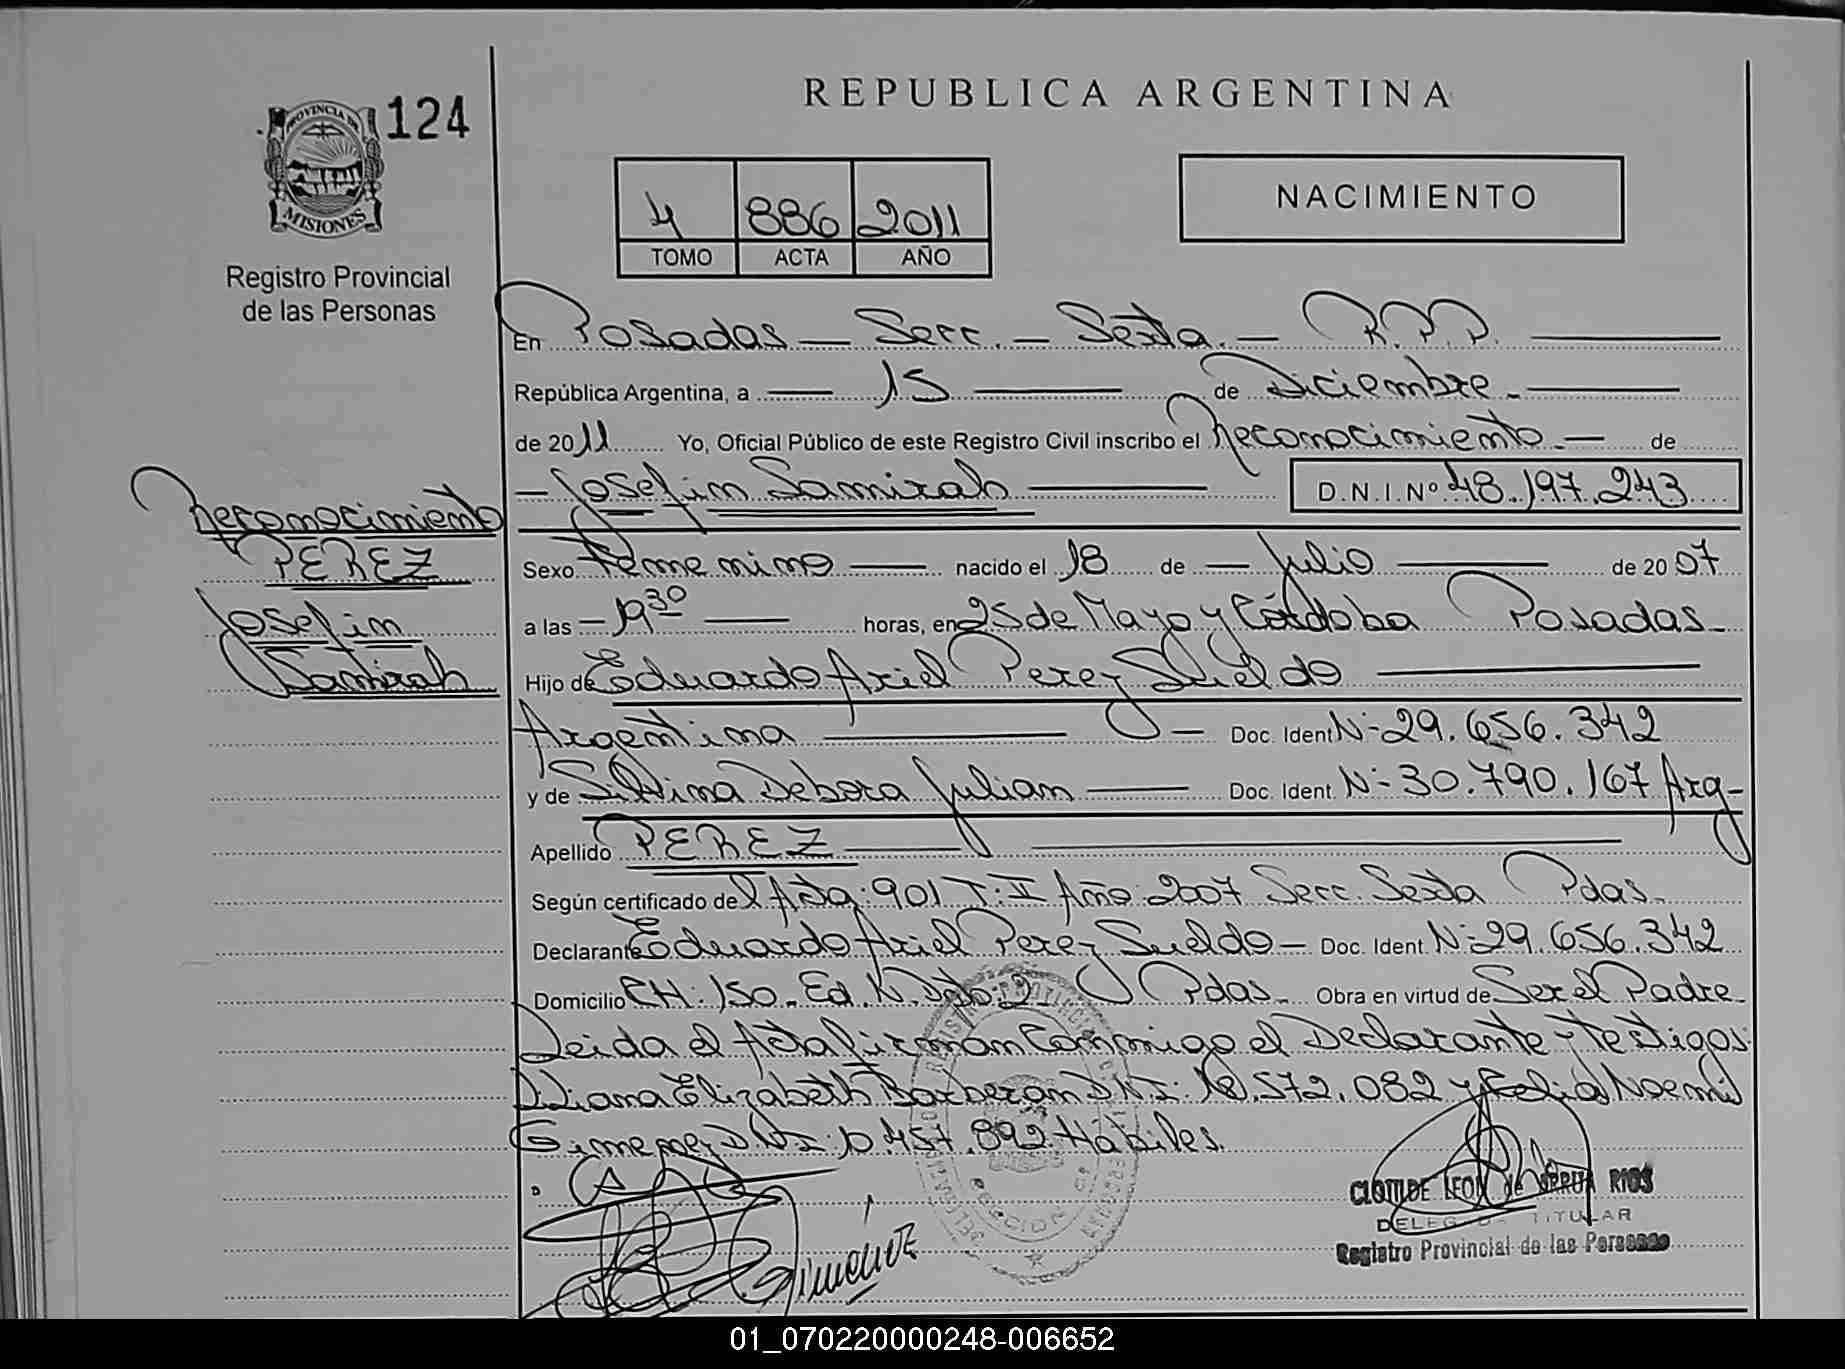 REPUBLICA ARGENTINA
PROVINCIA DE
MISIONES
124
Registro Provincial
de las Personas
4 886 2011
TOMO ACTA AÑO
NACIMIENTO
En Posadas — Secc. — Sexta. — R.P.P.
República Argentina, a — 15 — de Diciembre. —
de 2011 Yo, Oficial Público de este Registro Civil inscribo el Reconocimiento — de
— Josefin Samirah — D.N.I.Nº 48.197.243
Reconocimiento
PEREZ
Josefin
Samirah
Sexo Femenino — nacido el 18 de — Julio — de 20 07
a las — 19 30 — horas, en 25 de Mayo y Córdoba Posadas —
Hijo de Eduardo Ariel Perez Sueldo —
Argentina — Doc. Ident. Nº 29.656.342
y de Silvina Debora Julian — Doc. Ident. Nº 30.790.167 Arg —
Apellido PEREZ —
Según certificado del Acta: 901 T: II Año: 2007 Secc. Sexta Pdas.
Declarante Eduardo Ariel Perez Sueldo — Doc. Ident. Nº 29.656.342
Domicilio CH: 150. Ed. N. Dpto. 2 Pdas. Obra en virtud de Ser el Padre.
Leida el Acta firman Conmigo el Declarante y testigos:
Liliana Elizabeth Barberan D.N.I: 18.572.082 y Noemi
Gimenez D.N.I: 10.457.892 Hábiles.
Gimenez
CLOTILDE LEON de RIOS
TITULAR
Registro Provincial de las Personas
01_070220000248-006652